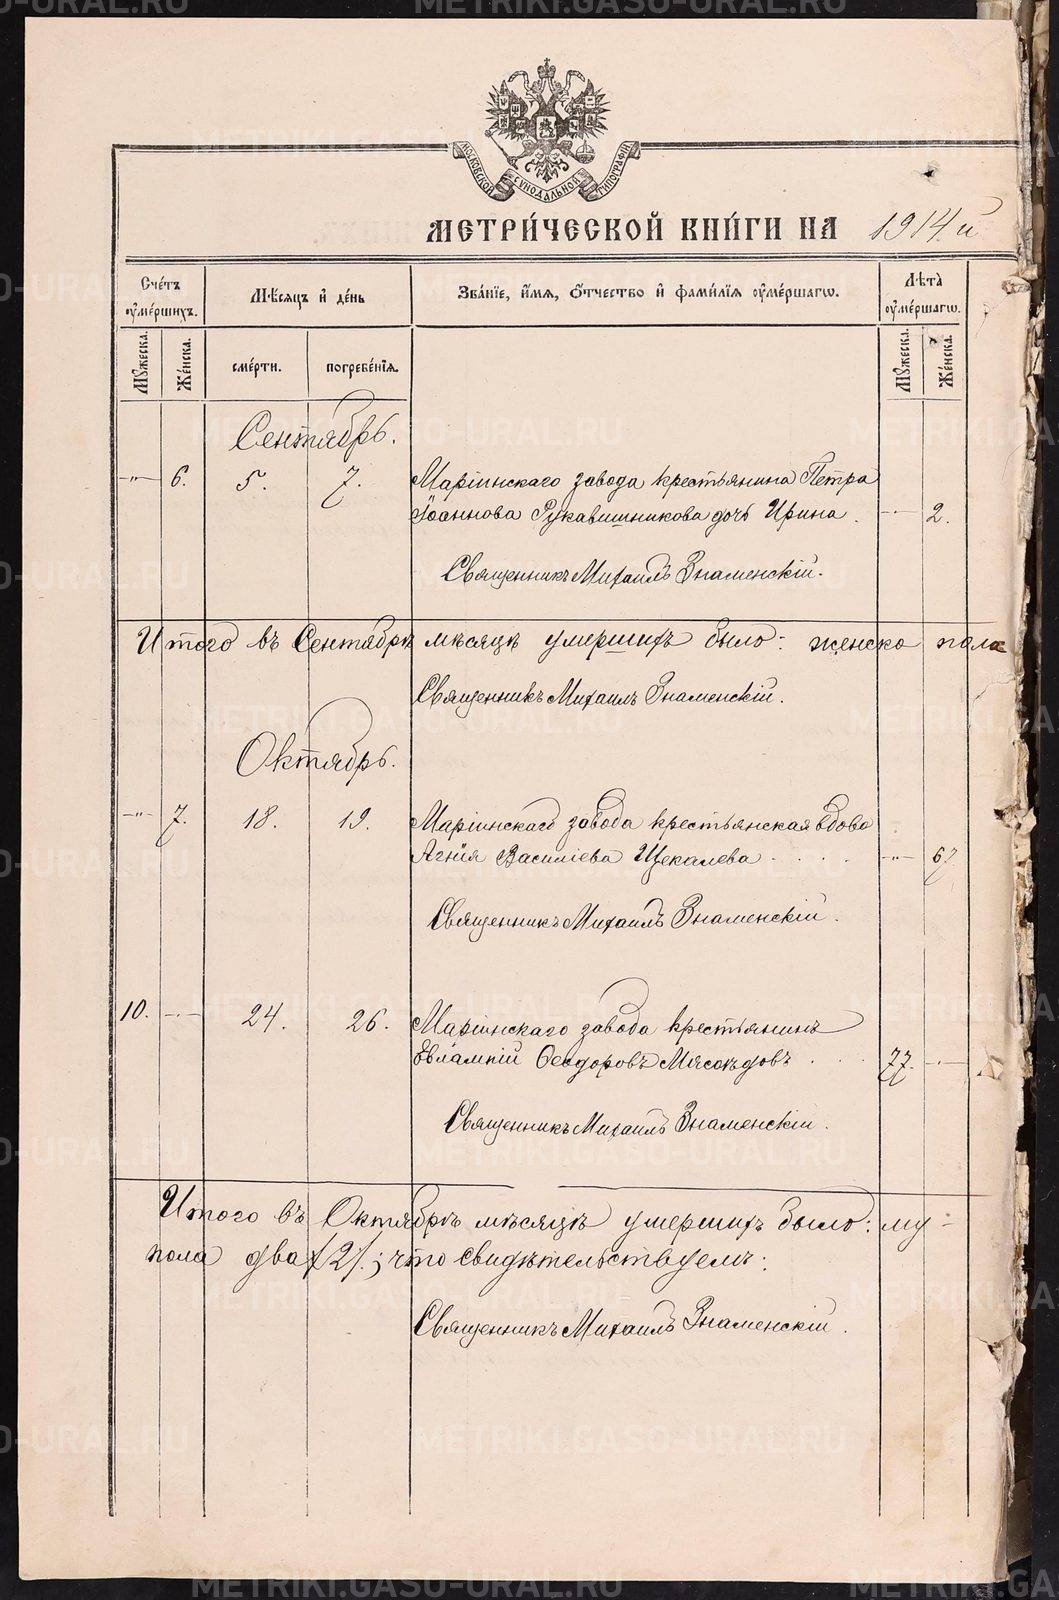 МОСКОВСКОЙ СѴНОДАЛЬНОЙ ТИПОГРАФІИ
МЕТРИ́ЧЕСКОЙ КНИ́ГИ НА 1914 й
Сче́тъ оу҆ме́ршихъ.
Мѣ́сяцъ и҆ де́нь
Зва́нїе, и҆́мѧ, ѻ҆́тчество и҆ фами́лїѧ оу҆ме́ршагѡ.
Лѣта̀ оу҆ме́ршагѡ.
Мꙋ́жеска. Же́нска. сме́рти. погребе́нїѧ. Мꙋ́жеска. Же́нска.
Сентябрь.
-"- 6. 5. 7. Маріинскаго завода крестьянина Петра
Іоаннова Рукавишникова дочь Ирина. -"- 2.
Священникъ Михаилъ Знаменскій.
Итого въ Сентябрѣ мѣсяцѣ умершихъ было: женска пола
Священникъ Михаилъ Знаменскій.
Октябрь.
-"- 7. 18. 19. Маріинскаго завода крестьянская вдова
Агнія Василіева Щекалева . . . . -"- 67
Священникъ Михаилъ Знаменскій.
10. -"- 24. 26. Маріинскаго завода крестьянинъ
Евлампій Ѳеодоровъ Мясоѣдовъ . . . 77. -"-
Священникъ Михаилъ Знаменскій.
Итого въ Октябрѣ мѣсяцѣ умершихъ было: му-
пола два /2/.; что свидѣтельствуемъ:
Священникъ Михаилъ Знаменскій.
METRIKI.GASO-URAL.RU